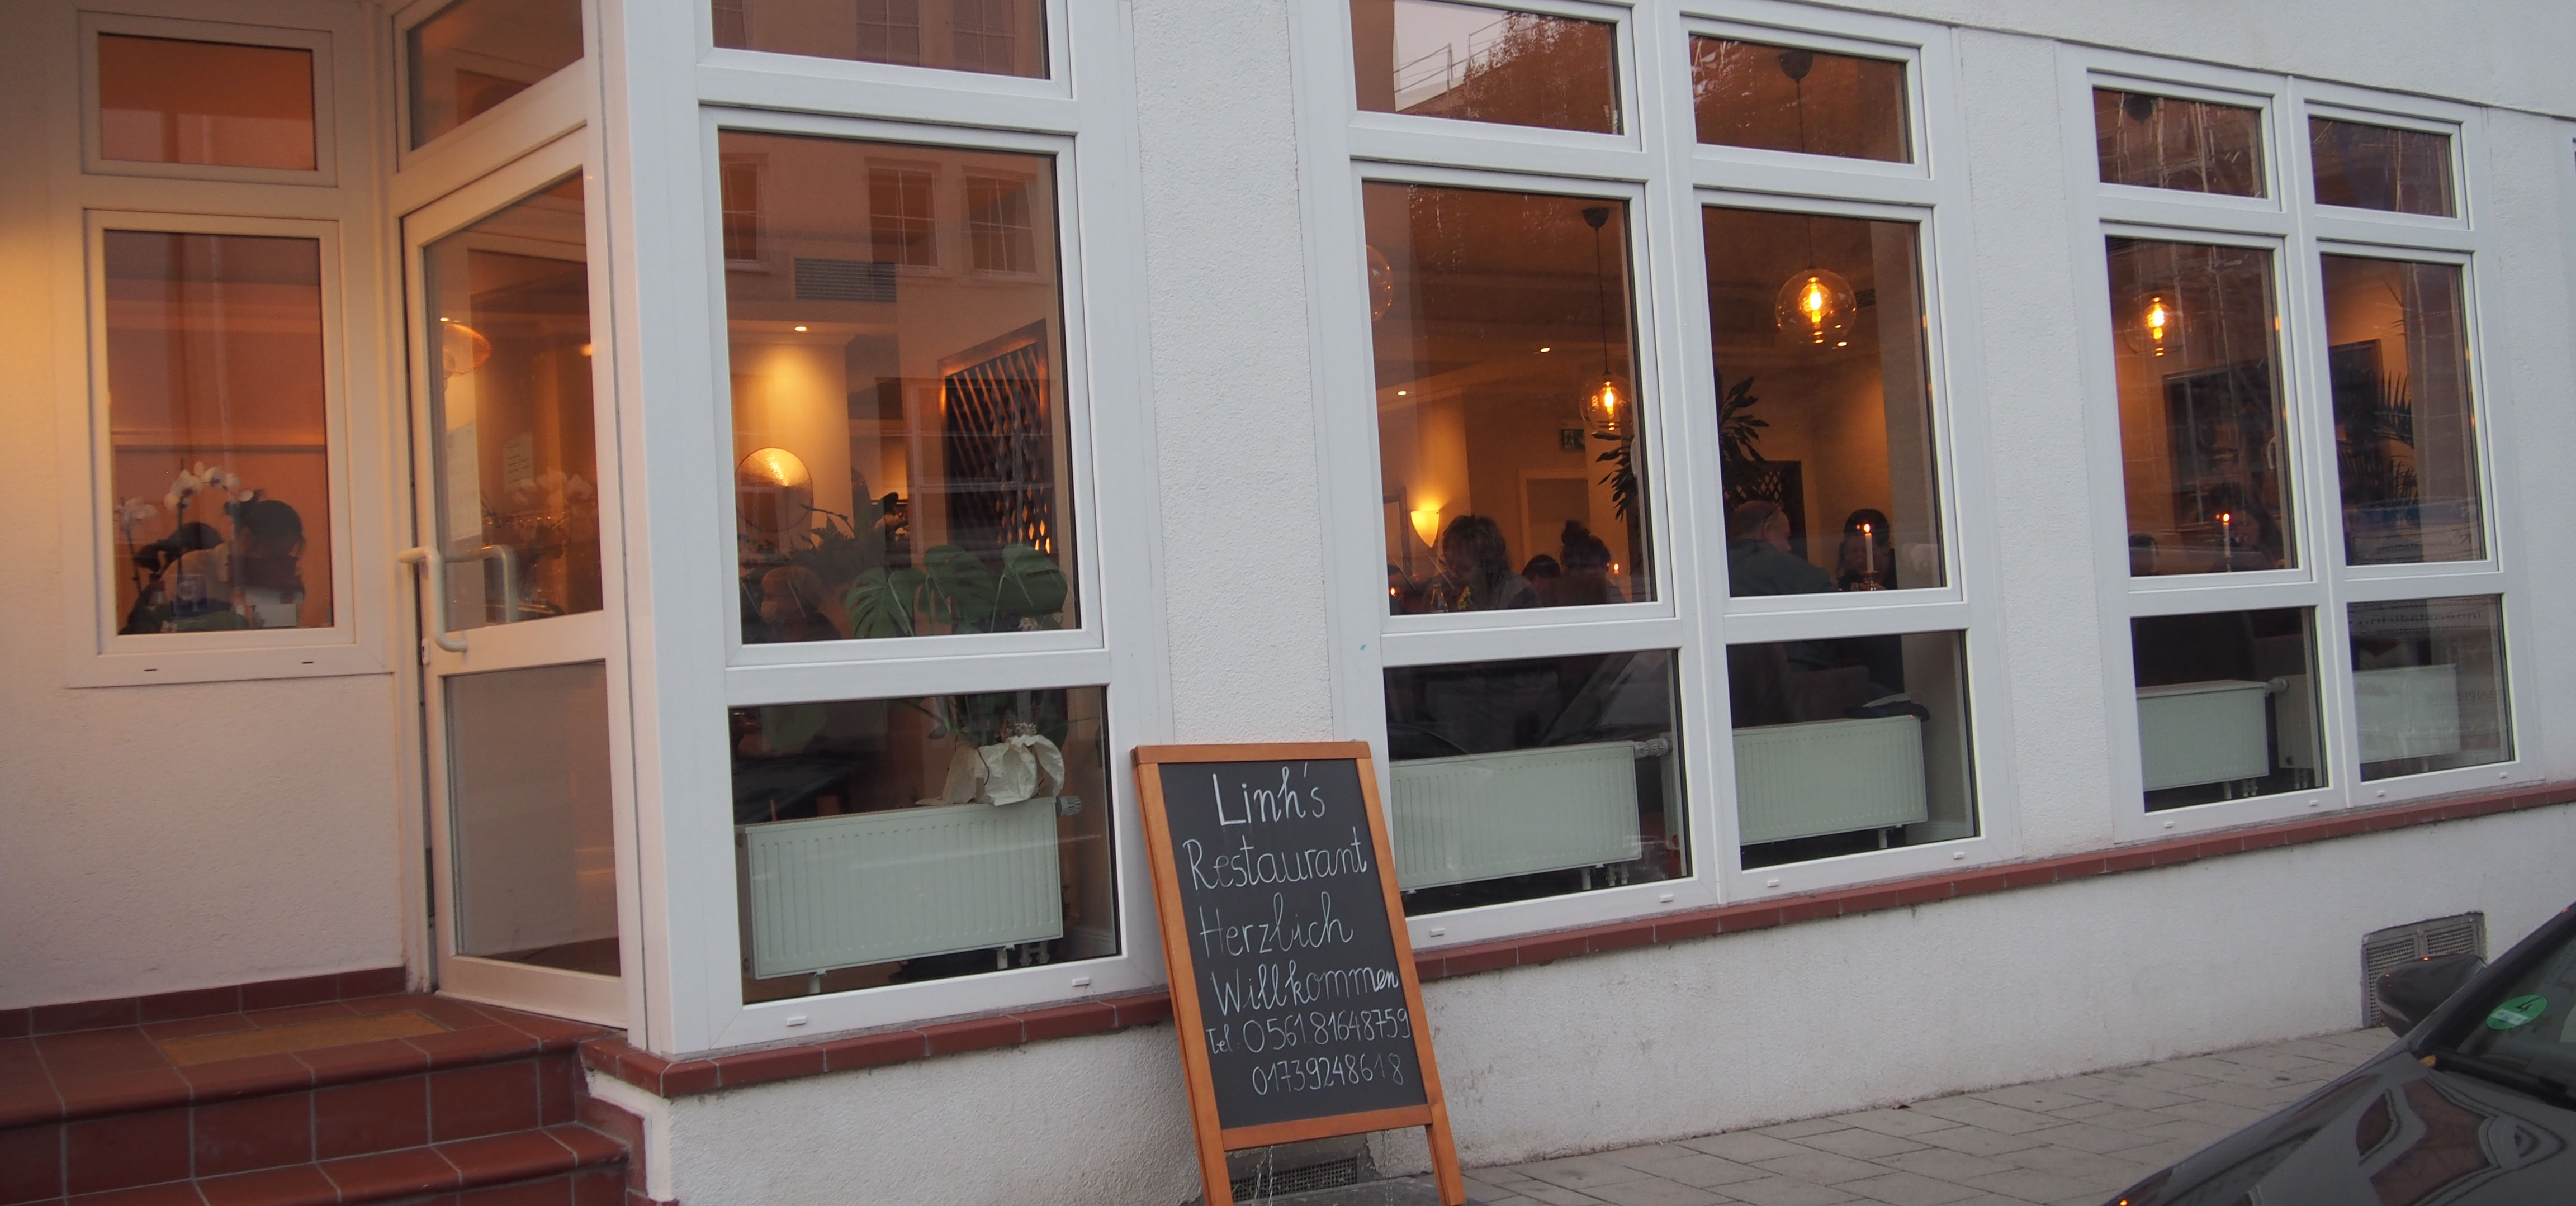 Linh's
Restaurant
Herzlich
Willkommen
Tel. 0561.81648759
01739248618
4